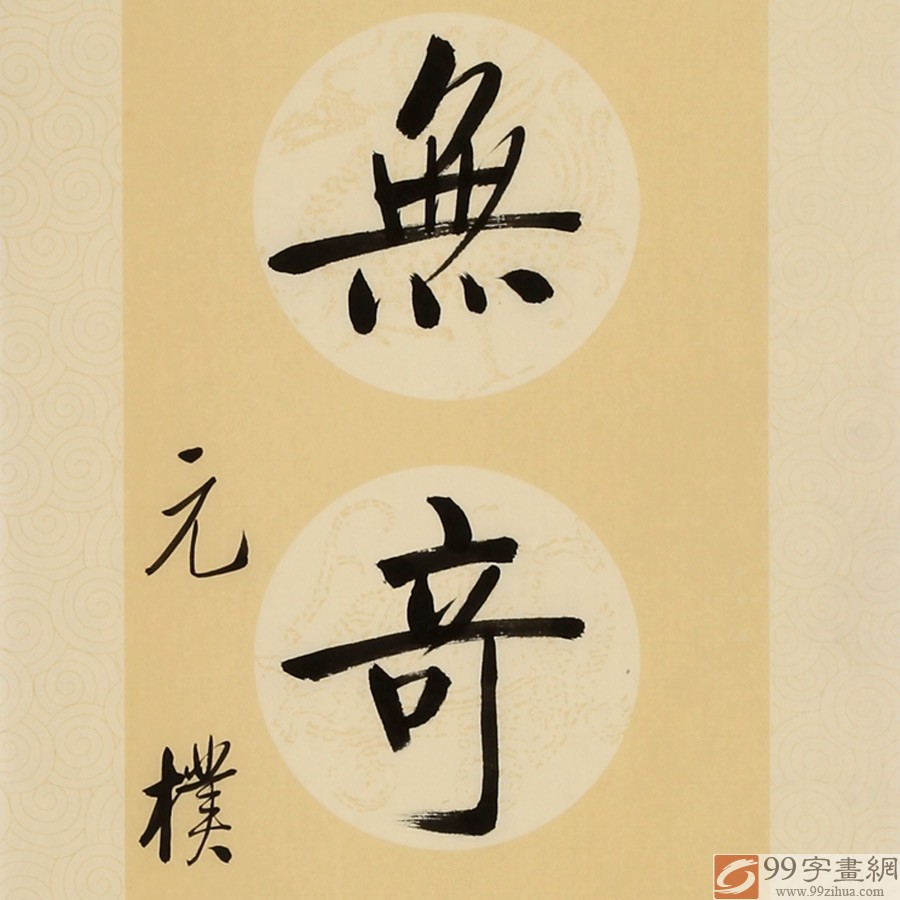 無
奇
元
樸
99字畫網
www.99zihua.com